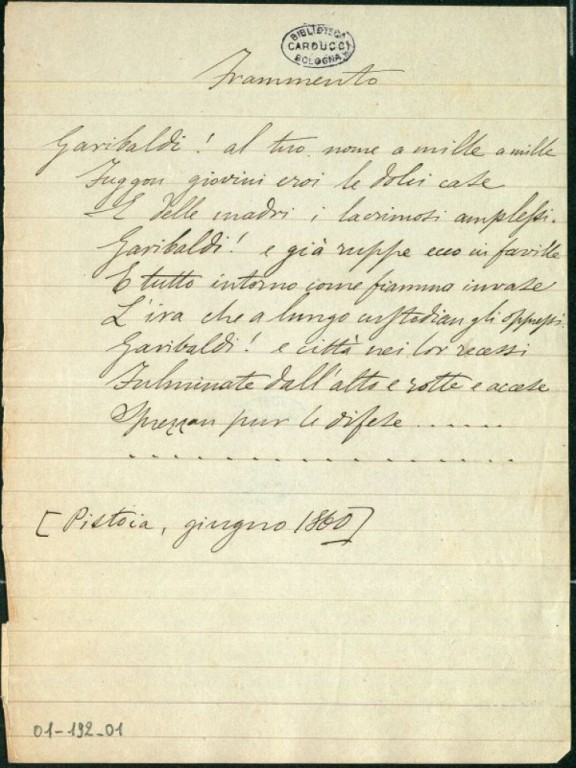 BIBLIOTECA
CARDUCCI
BOLOGNA
Frammento
Garibaldi! al tuo nome a mille a mille
Fuggon giovini eroi le dolci case
E delle madri i lacrimosi amplessi.
Garibaldi! e già ruppe ecco in faville
E tutto intorno come fiamma invase
L'ira che a lungo custodian gli oppressi.
Garibaldi! e città nei lor recessi
Fulminate dall'alto e rotte e accese
Sprezzan pur le difese......
. . . . . . . . . . . . . . . .
[Pistoia, giugno 1860]
01-192-01